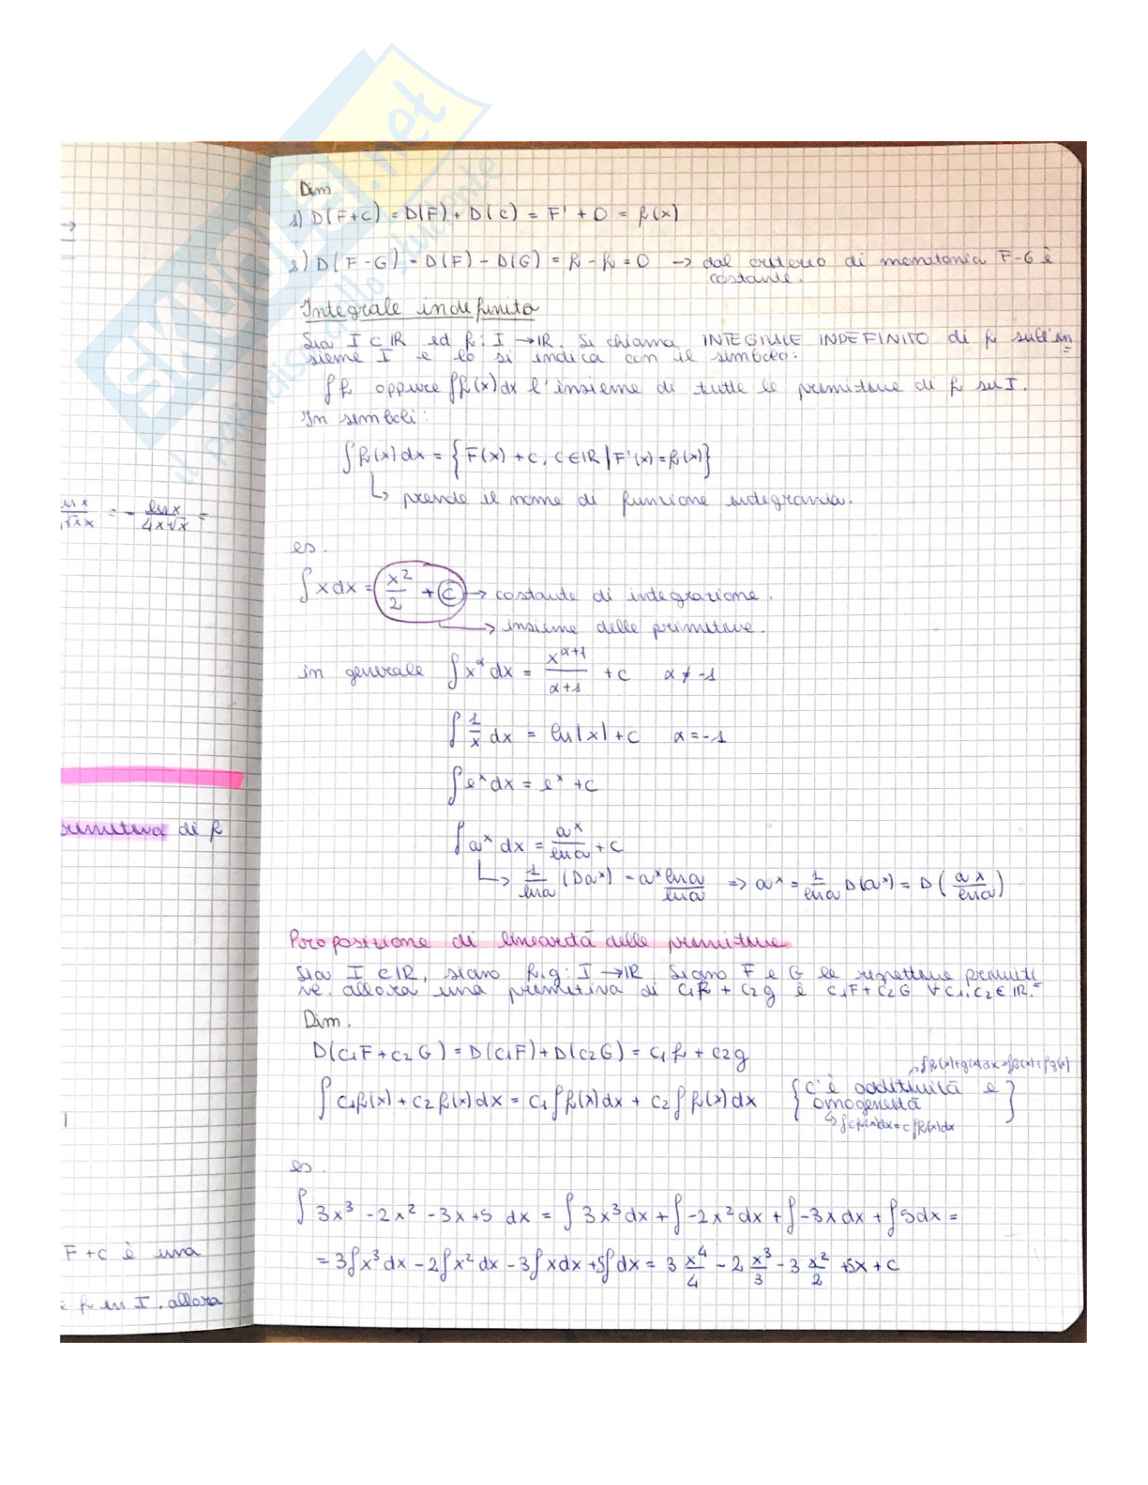 Dim
1) D(F+C) = D(F) + D(C) = F' + 0 = f(x)
2) D(F-G) = D(F) - D(G) = f - f = 0 → dal criterio di monotonia F-G è
costante.
Integrale indefinito
Sia I ⊂ ℝ ed f: I → ℝ. Si chiama INTEGRALE INDEFINITO di f sull'in=
sieme I e lo si indica con il simbolo:
∫f oppure ∫f(x)dx l'insieme di tutte le primitive di f su I.
In simboli:
∫f(x)dx = {F(x) + c, c∈ℝ | F'(x) = f(x)}
↳ prende il nome di funzione integranda.
es.
∫x dx = x²/2 + c → costante di integrazione.
→ insieme delle primitive.
in generale ∫x^α dx = x^(α+1)/(α+1) + c α ≠ -1
∫1/x dx = ln|x| + c α = -1
∫e^x dx = e^x + c
∫a^x dx = a^x/ln a + c
↳ 1/ln a (Da^x) = a^x ln a/ln a ⇒ a^x = 1/ln a D(a^x) = D(a^x/ln a)
Proposizione di linearità delle primitive
Sia I ⊂ ℝ, siano f,g: I → ℝ. Siano F e G le rispettive primiti=
ve. allora una primitiva di c₁f + c₂g è c₁F + c₂G ∀ c₁, c₂ ∈ ℝ.
Dim.
D(c₁F + c₂G) = D(c₁F) + D(c₂G) = c₁f + c₂g
∫f(x)+g(x)dx = ∫f(x)+∫g(x)
∫c₁f(x) + c₂f(x)dx = c₁∫f(x)dx + c₂∫f(x)dx {c'è additività e
omogeneità}
↳ ∫cf(x)dx = c∫f(x)dx
es.
∫3x³ - 2x² - 3x + 5 dx = ∫3x³dx + ∫-2x²dx + ∫-3x dx + ∫5dx =
= 3∫x³dx - 2∫x²dx - 3∫xdx + 5∫dx = 3 x⁴/4 - 2 x³/3 - 3 x²/2 + 5x + c
= - ln x/4x√x =
primitiva di f
F + c è una
f su I, allora